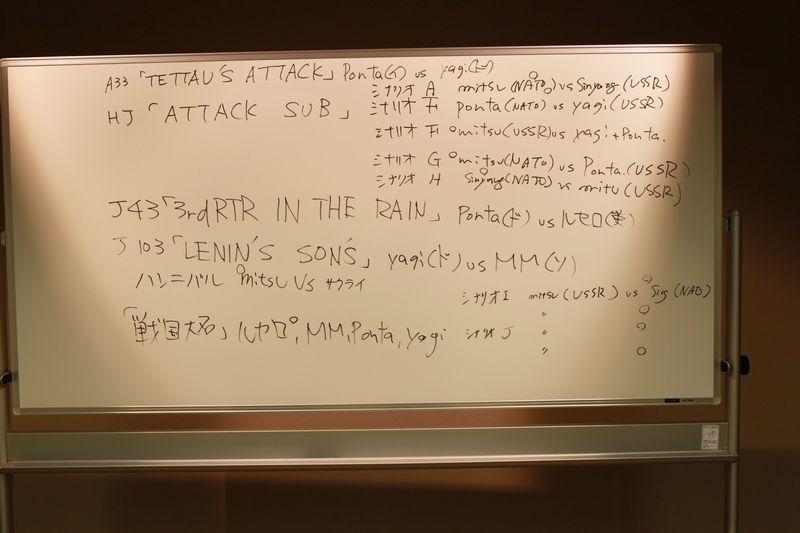 A33「TETTAU'S ATTACK」Ponta(G) vs yagi(ド)
HJ「ATTACK SUB」
シナリオ A mitsu(NATO) vs Sinyong(USSR)
シナリオ F ponta(NATO) vs yagi(USSR)
シナリオ F ○mitsu(USSR) vs yagi+Ponta.
シナリオ G ○mitsu(NATO) vs Ponta.(USSR)
シナリオ H Sinyong(NATO) vs mitu(USSR)
J43「3rd RTR IN THE RAIN」Ponta(ド) vs ルセロ(英)
J103「LENIN'S SONS」yagi(ド) vs MM(ソ)
ハンニバル ○mitsu Vs サクライ
シナリオ I mitsu(USSR) vs ○Sin(NATO)
〃 ○
「戦国大名」ルセロ, MM, Ponta, yagi
シナリオ J 〃 ○
〃 ○